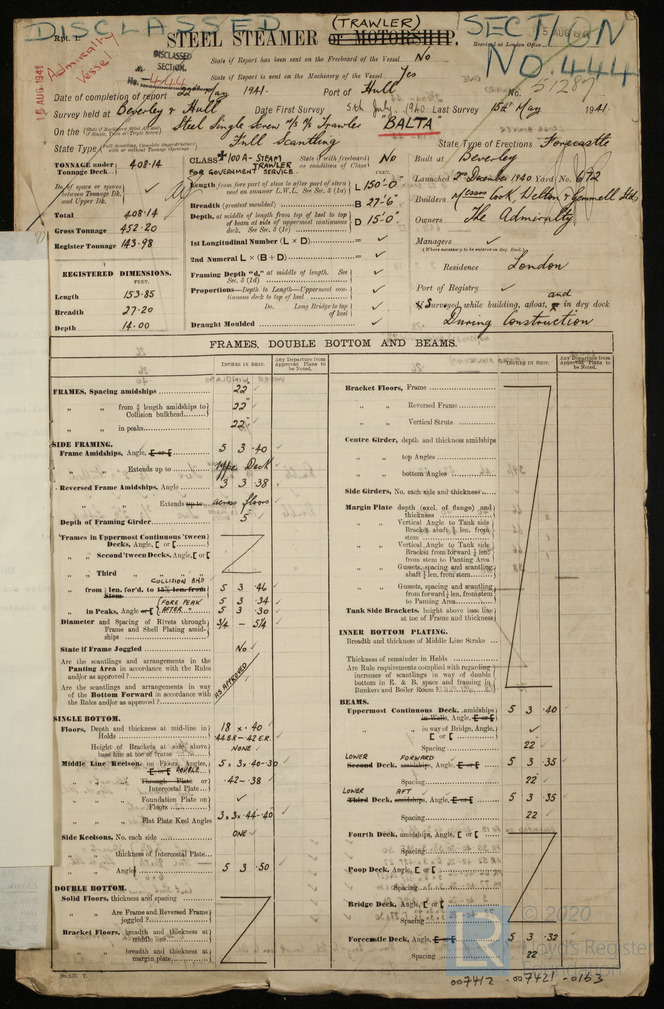 DISCLASSED
(TRAWLER)
SECTION
NO. 444
Rpt. 1.
STEEL STEAMER or MOTORSHIP.
15 AUG 1941
Received at London Office
15 AUG 1941
Admiralty Vessel
DISCLASSED SECTION.
No. 444
State if Report has been sent on the Freeboard of the Vessel No
State if Report is sent on the Machinery of the Vessel Yes
No. 51287
Date of completion of report 22nd May 1941. Port of Hull
Survey held at Beverley & Hull Date First Survey 5th July 1940 Last Survey 15th May 1941
On the Steel Single Screw Trawler "BALTA"
State Type Full Scantling State Type of Erections Forecastle
TONNAGE under Tonnage Deck 408.14
Total 408.14
Gross Tonnage 452.20
Register Tonnage 143.98
REGISTERED DIMENSIONS.
FEET.
Length 153.85
Breadth 27.20
Depth 14.00
CLASS 100A-STEAM TRAWLER State if with freeboard as condition of Class No
FOR GOVERNMENT SERVICE.
FEET.
Length from fore part of stem to after part of stern post on summer L.W.L. See Sec. 3 (1a) L 150'-0"
Breadth (greatest moulded) B 27'-6"
Depth, at middle of length from top of keel to top of beam at side of uppermost continuous deck. See Sec. 3 (1c) D 15'-0"
1st Longitudinal Number (L × D) = ✓
2nd Numeral L × (B + D) = ✓
Framing Depth "d," at middle of length. See Sec. 3 (1d) ✓
Proportions—Depth to Length—Uppermost continuous deck to top of keel ✓
Do. Long Bridge to top of keel ✓
Draught Moulded ✓
Built at Beverley
Launched 2nd December 1940 Yard No. 672
Builders Messrs Cook, Welton & Gemmell Ltd
Owners The Admiralty
Managers ✓
(Where necessary to be entered in Reg. Book)
Residence London
Port of Registry ✓
If Surveyed while building, afloat, or and in dry dock
During Construction
FRAMES, DOUBLE BOTTOM AND BEAMS.
INCHES IN SHIP.
Any Departure from Approved Plans to be Noted.
FRAMES, Spacing amidships 22"
" " from ⅗ length amidships to Collision bulkhead 22"
" " in peaks 22"
SIDE FRAMING.
Frame Amidships, Angle, [ or [ 5 3 .40
" " Extends up to upper Deck
Reversed Frame Amidships, Angle 3 3 .38
" " Extends up to across floors
Depth of Framing Girder 5
Frames in Uppermost Continuous 'tween Decks, Angle, [ or [
" Second 'tween Decks, Angle, [ or [
" Third " " "
COLLISION BHD
" from ¼ len. for'd. to 15% len. from Stem 5 3 .46
" in Peaks, Angle or [ FORE PEAK 5 3 .34
AFTER " 5 3 .30
Diameter and Spacing of Rivets through Frame and Shell Plating amidships 3/4 - 5¼
State if Frame Joggled No
Are the scantlings and arrangements in the Panting Area in accordance with the Rules and/or as approved?
Are the scantlings and arrangements in way of the Bottom Forward in accordance with the Rules and/or as approved?
AS APPROVED
SINGLE BOTTOM.
Floors, Depth and thickness at mid-line in Holds 18 × .40
.44 ER - .42 ER.
Height of Brackets at side above base line at toe of frame NONE
Middle Line Keelson, on Floors, Angles, [ or [ DOUBLE 5 × 3 × .40-.30
" " Through Plate or Intercostal Plate .42-.38
" " Foundation Plate on Floors ✓
" " Flat Plate Keel Angles 3 × 3 × .44-.40
Side Keelsons, No. each side ONE
" " thickness of Intercostal Plate
" " Angles 5 3 .50
DOUBLE BOTTOM.
Solid Floors, thickness and spacing
" " Are Frame and Reversed Frame joggled?
Bracket Floors, breadth and thickness at middle line
" " breadth and thickness at margin plate
Bracket Floors, Frame
" " Reversed Frame
" " Vertical Struts
Centre Girder, depth and thickness amidships
" " top Angles
" " bottom Angles
Side Girders, No. each side and thickness
Margin Plate depth (excl. of flange) and thickness
" " Vertical Angle to Tank side Bracket abaft ¼ len. from stem
" " Vertical Angle to Tank side Bracket from forward ¼ len. from stem to Panting Area
" " Gussets, spacing and scantling abaft ¼ len. from stem
" " Gussets, spacing and scantling from forward ¼ len. from stem to Panting Area
Tank Side Brackets, height above base line at toe of Frame and thickness
INNER BOTTOM PLATING.
Breadth and thickness of Middle Line Strake
Thickness of remainder in Holds
Are Rule requirements complied with regarding increases of scantlings in way of double bottom in E. & B. space and framing in Bunkers and Boiler Room?
BEAMS.
Uppermost Continuous Deck, amidships in Wells, Angle, [ or [ 5 3 .40
" " in way of Bridge, Angle, [ or [ ✓
Spacing 22
LOWER FORWARD
Second Deck, amidships, Angle, [ or [ 5 3 .35
Spacing 22
LOWER AFT
Third Deck, amidships, Angle, [ or [ 5 3 .35
Spacing 22
Fourth Deck, amidships, Angle, [ or [
Spacing
Poop Deck, Angle, [ or [
Spacing
Bridge Deck, Angle, [ or [
Spacing
Forecastle Deck, Angle, [ or [ 5 3 .32
Spacing 22
© 2020
Lloyd's Register
Foundation
007412 - 007421 - 0163